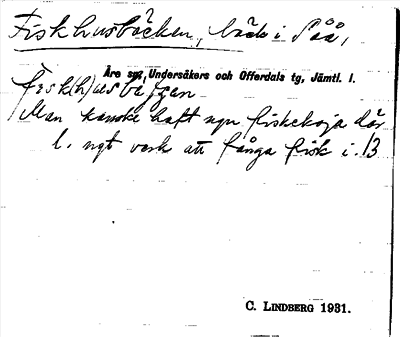 Fiskhusbäcken, bäck i Såå,
Åre sn, Undersåkers och Offerdals tg, Jämtl. l.
fisk(h)us
Man kanske haft ngn fiskekoja där
l. ngt verk att fånga fisk i. 13
C. LINDBERG 1931.